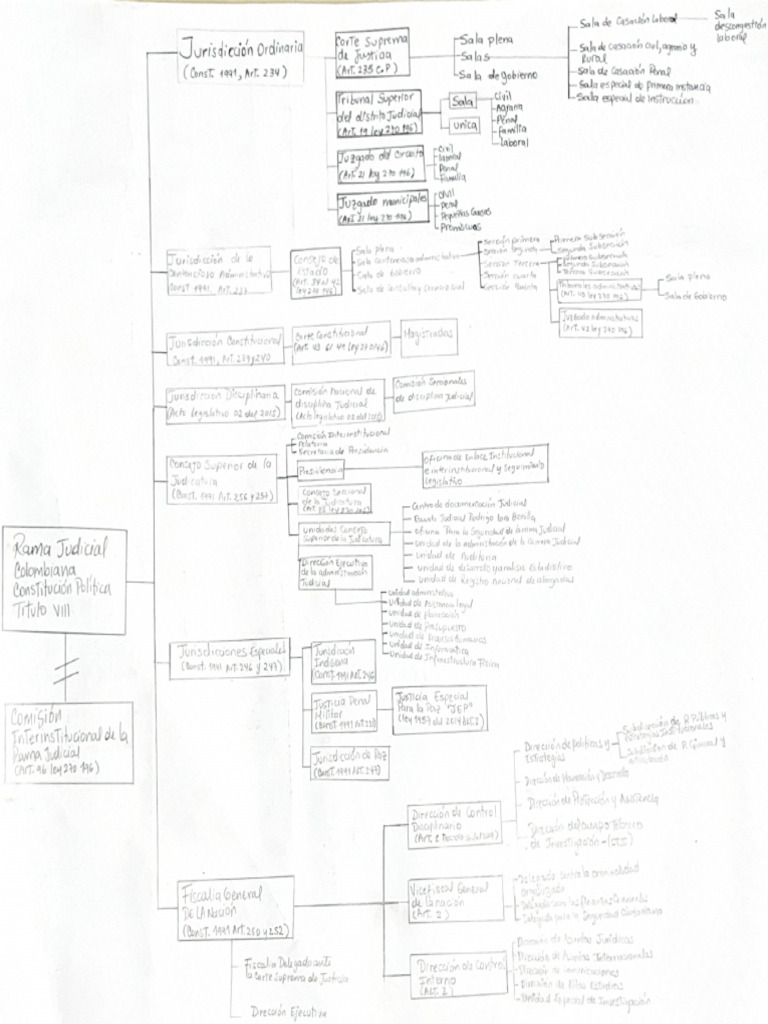 Rama Judicial
Colombiana
Constitución Política
Titulo VIII
Comisión
Interinstitucional de la
Rama Judicial
(Art. 96 ley 270 196)
Jurisdicción Ordinaria
(Const. 1991, Art. 234)
Corte Suprema
de Justicia
(Art. 235 C.P)
Sala plena
Salas
Sala de Gobierno
Sala de Casación Laboral
Sala
descongestión
laboral
Sala de casación civil, agrario y
Rural
Sala de Casación Penal
Sala especial de primera instancia
Sala especial de Instrucción
Tribunal Superior
del distrito Judicial
(Art. 19 ley 270 196)
Sala
unica
Civil
Agraria
Penal
Familia
Laboral
Juzgado del Circuito
(Art. 21 ley 270 196)
Civil
laboral
Penal
Familia
Juzgado municipales
(Art. 21 ley 270 196)
Civil
Penal
Pequeñas Causas
Promiscuos
Jurisdicción de lo
Contencioso Administrativo
Const 1991, Art. 237
Consejo de
Estado
Sala plena
Sala Contencioso administrativo
Sala de Gobierno
Sala de Consulta y servicio civil
Sección primera
Sección segunda
Sección Tercera
Sección cuarta
Sección Quinta
Primera Subsección
Segunda Subsección
Primera Subsección
Segunda Subsección
Tercera Subsección
Tribunales administrativos
Sala Plena
Sala de Gobierno
Juzgado administrativos
(Art. 42 ley 270 196)
Jurisdicción Constitucional
Const. 1991, Art. 239 y 240
Corte Constitucional
Magistrados
Jurisdicción Disciplinaria
(Acto legislativo 02 del 2015)
Comisión Nacional de
disciplina Judicial
(Acto legislativo 02 del 2015)
Comisión Seccionales
de disciplina Judicial
Consejo Superior de la
Judicatura
(Const. 1991 Art. 256 y 257)
Comisión Interinstitucional
Relatoria
Secretaria de Presidencia
Presidencia
oficina de Enlace Institucional
e interinstitucional y Seguimiento
Legislativo
Consejo Seccional
de la Judicatura
unidades Consejo
Superior de la Judicatura
Centro de documentación Judicial
Escuela Judicial Rodrigo Lara Bonilla
oficina Para la Seguridad de la rama Judicial
unidad de la administración de la Carrera Judicial
unidad de Auditoria
unidad de desarrollo y analisis Estadistico
unidad de Registro nacional de abogados
Dirección Ejecutiva
de la administración
Judicial
unidad administrativa
unidad de Asistencia legal
unidad de planeación
unidad de Presupuesto
unidad de Recursos humanos
unidad de Informatica
unidad de Infraestructura Fisica
Jurisdicciones Especiales
(Const. 1991 Art. 246 y 247)
Jurisdicción
Indigena
(Const. 1991 Art. 246
Justicia Penal
Militar
Justicia Especial
Para la Paz "JEP"
Jurisdicción de Paz
(Const. 1991 Art. 247)
Fiscalia General
DE LA Nación
(Const. 1991 Art. 250 y 252)
Fiscalia Delegado ante
la Corte Suprema de Justicia
Dirección Ejecutiva
Dirección de Control
Disciplinario
Dirección de politicas y
Estrategias
Dirección de Protección y Asistencia
Dirección del cuerpo Técnico
de Investigación - (CTI)
Vicefiscal General
de la nación
(Art. 2)
Delegada contra la criminalidad
organizada
Delegada para la Seguridad Ciudadana
Dirección de Control
Interno
(Art. 2)
Dirección de Asuntos Jurídicos
Dirección de Asuntos Internacionales
Dirección de comunicaciones
Dirección de Altos Estudios
Unidad Especial de Investigación